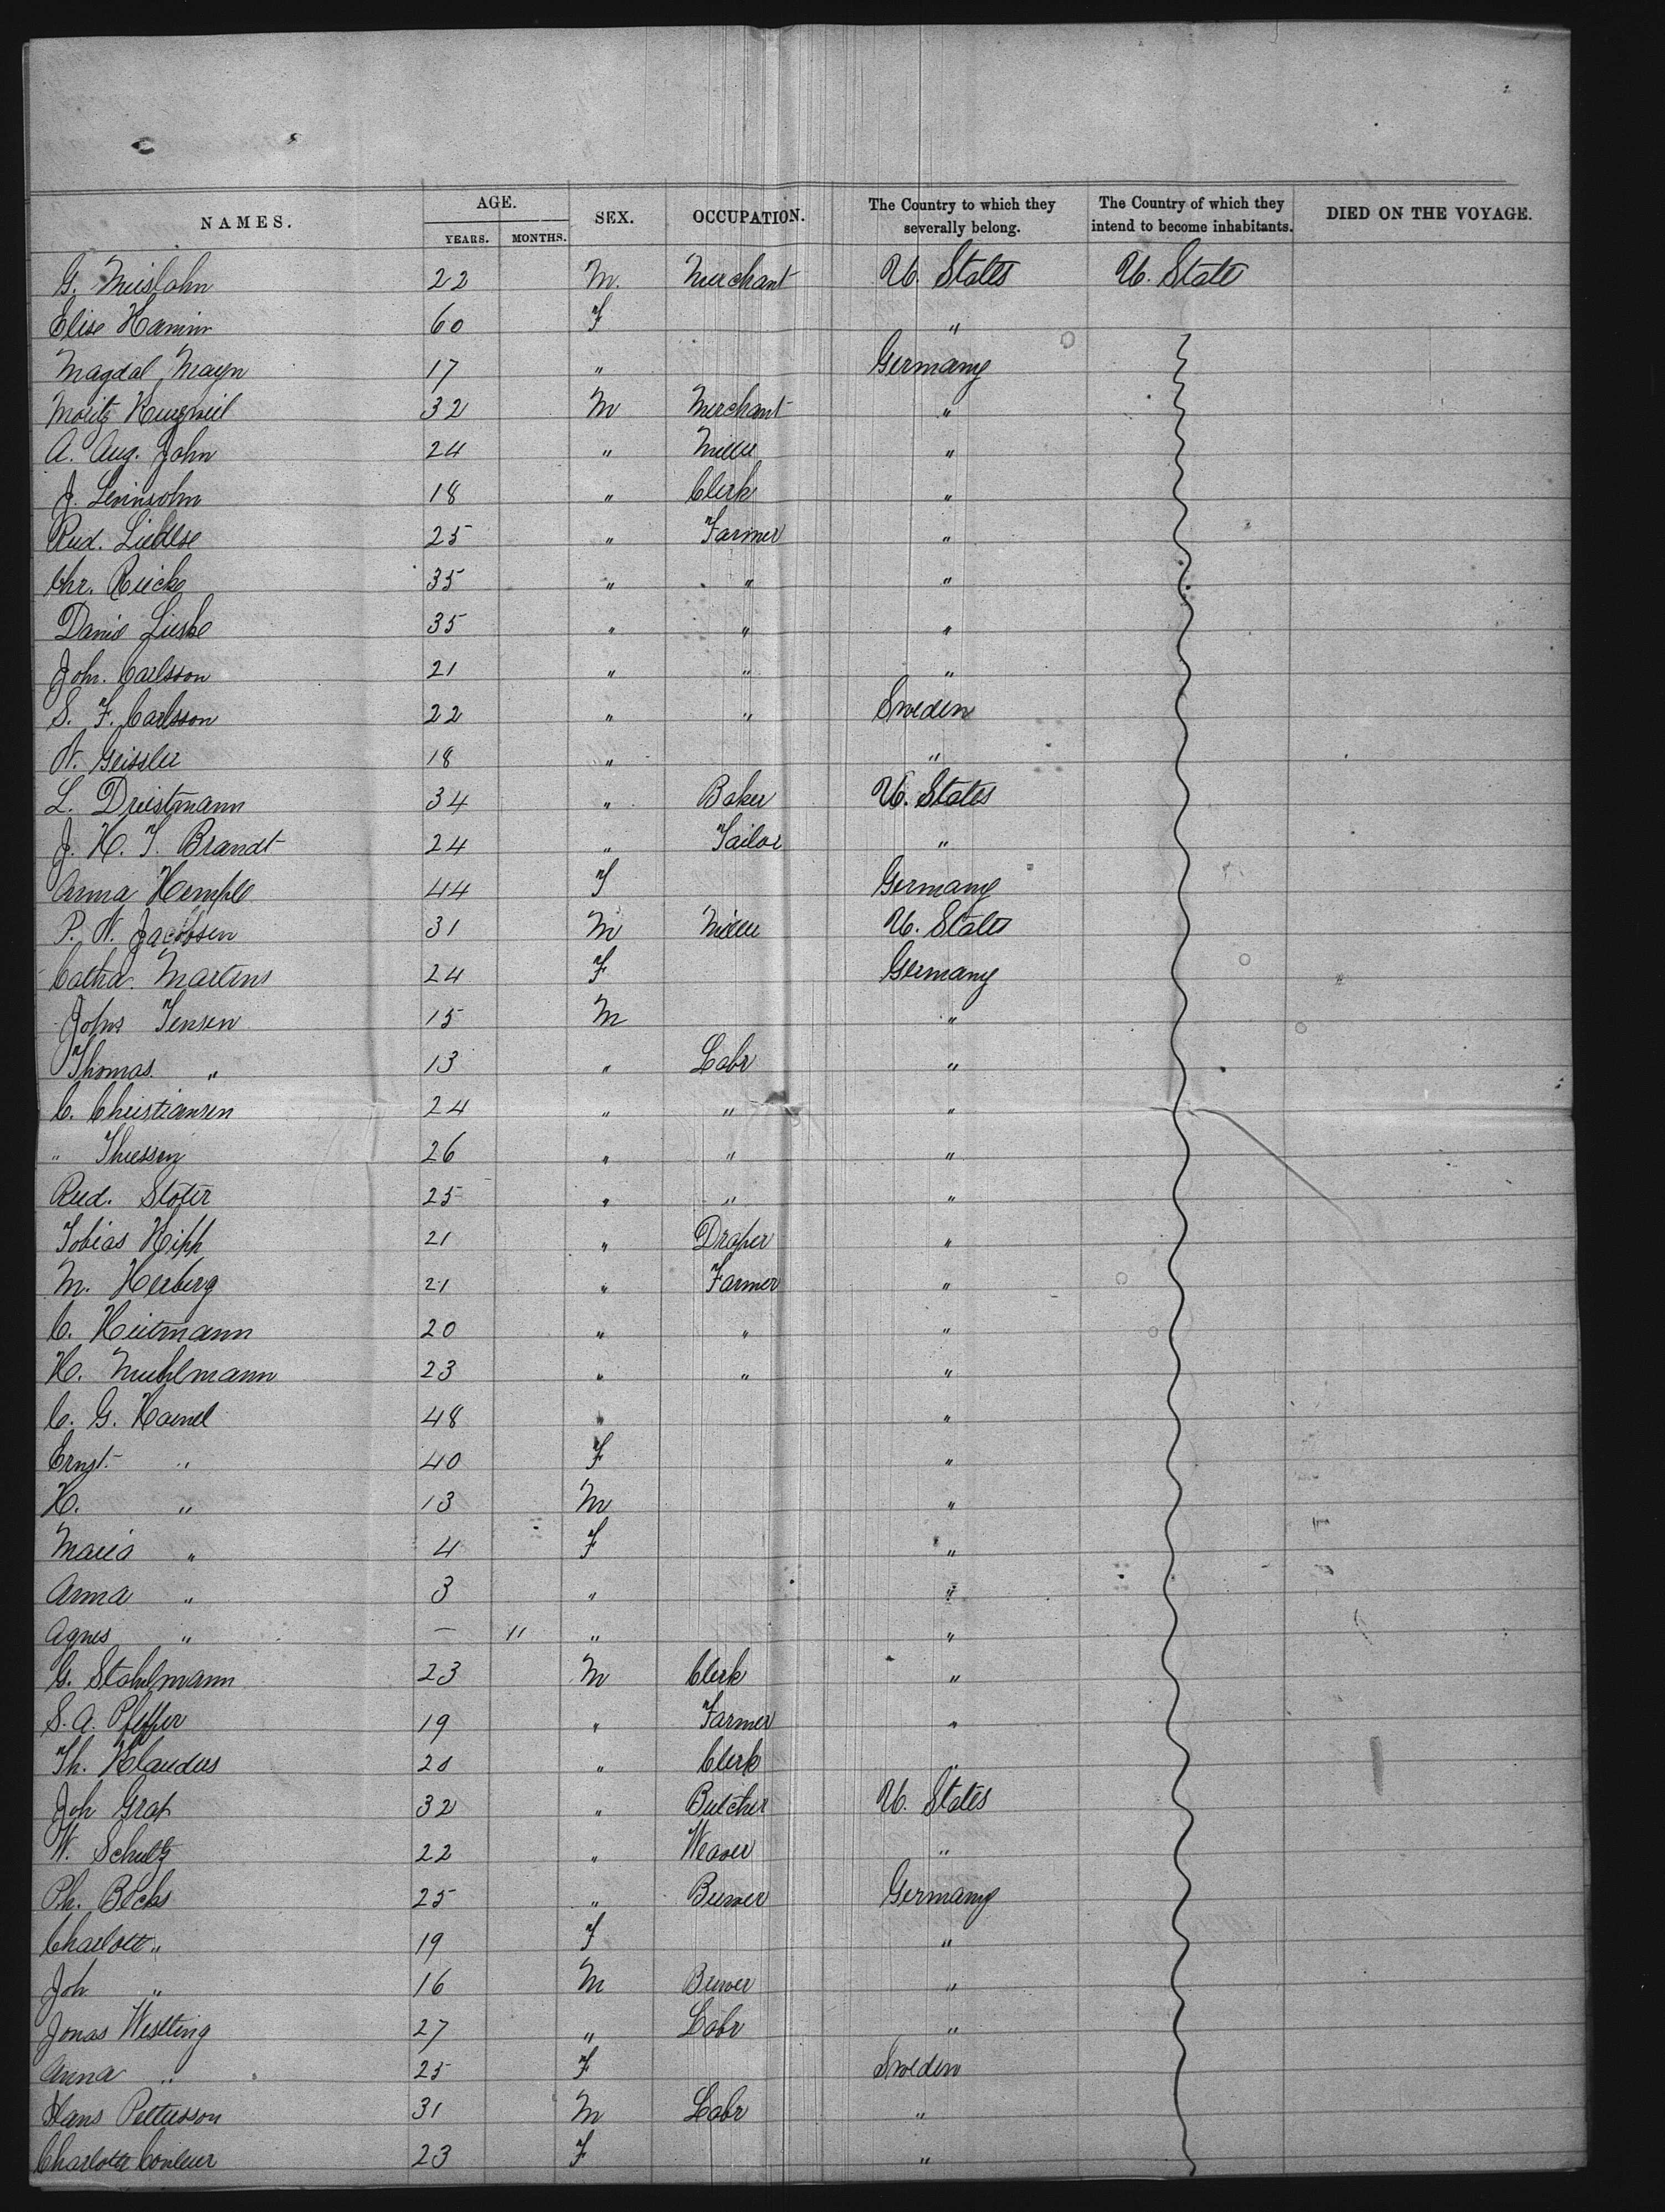 NAMES. AGE. SEX. OCCUPATION. The Country to which they severally belong. The Country of which they intend to become inhabitants. DIED ON THE VOYAGE.
YEARS. MONTHS.
G. Meislahn 22 M. Merchant U. States U. State
Elise Hamm 60 F "
Magdal Mayn 17 " Germany
Moritz Kurzweil 32 M Merchant "
A. Aug. John 24 " Miller "
J. Levinsohn 18 " Clerk "
Rud. Liedtke 25 " Farmer "
Chr. Reicke 35 " " "
Danie Lieske 35 " " "
Joh. Carlsson 21 " " "
S. F. Carlsson 22 " " Sweden
N. Geissler 18 " "
L. Driestmann 34 " Baker U. States
J. H. T. Brandt 24 " Tailor "
Anna Hemple 44 F Germany
P. N. Jacobsen 31 M Miller U. States
Catha. Martens 24 F Germany
Johs Jensen 15 M "
Thomas " 13 " Labr "
C. Christiansen 24 " " "
" Thiessen 26 " " "
Rud. Stoter 25 " " "
Tobias Hipp 21 " Draper "
M. Herberg 21 " Farmer "
C. Heitmann 20 " " "
H. Muhlmann 23 " " "
C. G. Haenel 48 " "
Ernst. " 40 F "
H. " 13 M "
Maria " 4 F "
Anna " 3 " "
Agnes " — 11 " "
G. Stahlmann 23 M Clerk "
S. A. Pfeffer 19 " Farmer "
Th. Klaudus 20 " Clerk "
Joh Graf 32 " Butcher U. States
W. Schultz 22 " Weaver "
Ph. Bechs 25 " Brewer Germany
Charlott " 19 F "
Joh " 16 M Brewer "
Jonas Westling 27 " Labr "
Anna " 25 F Sweden
Hans Pettersson 31 M Labr "
Charlotte Couleur 23 F "